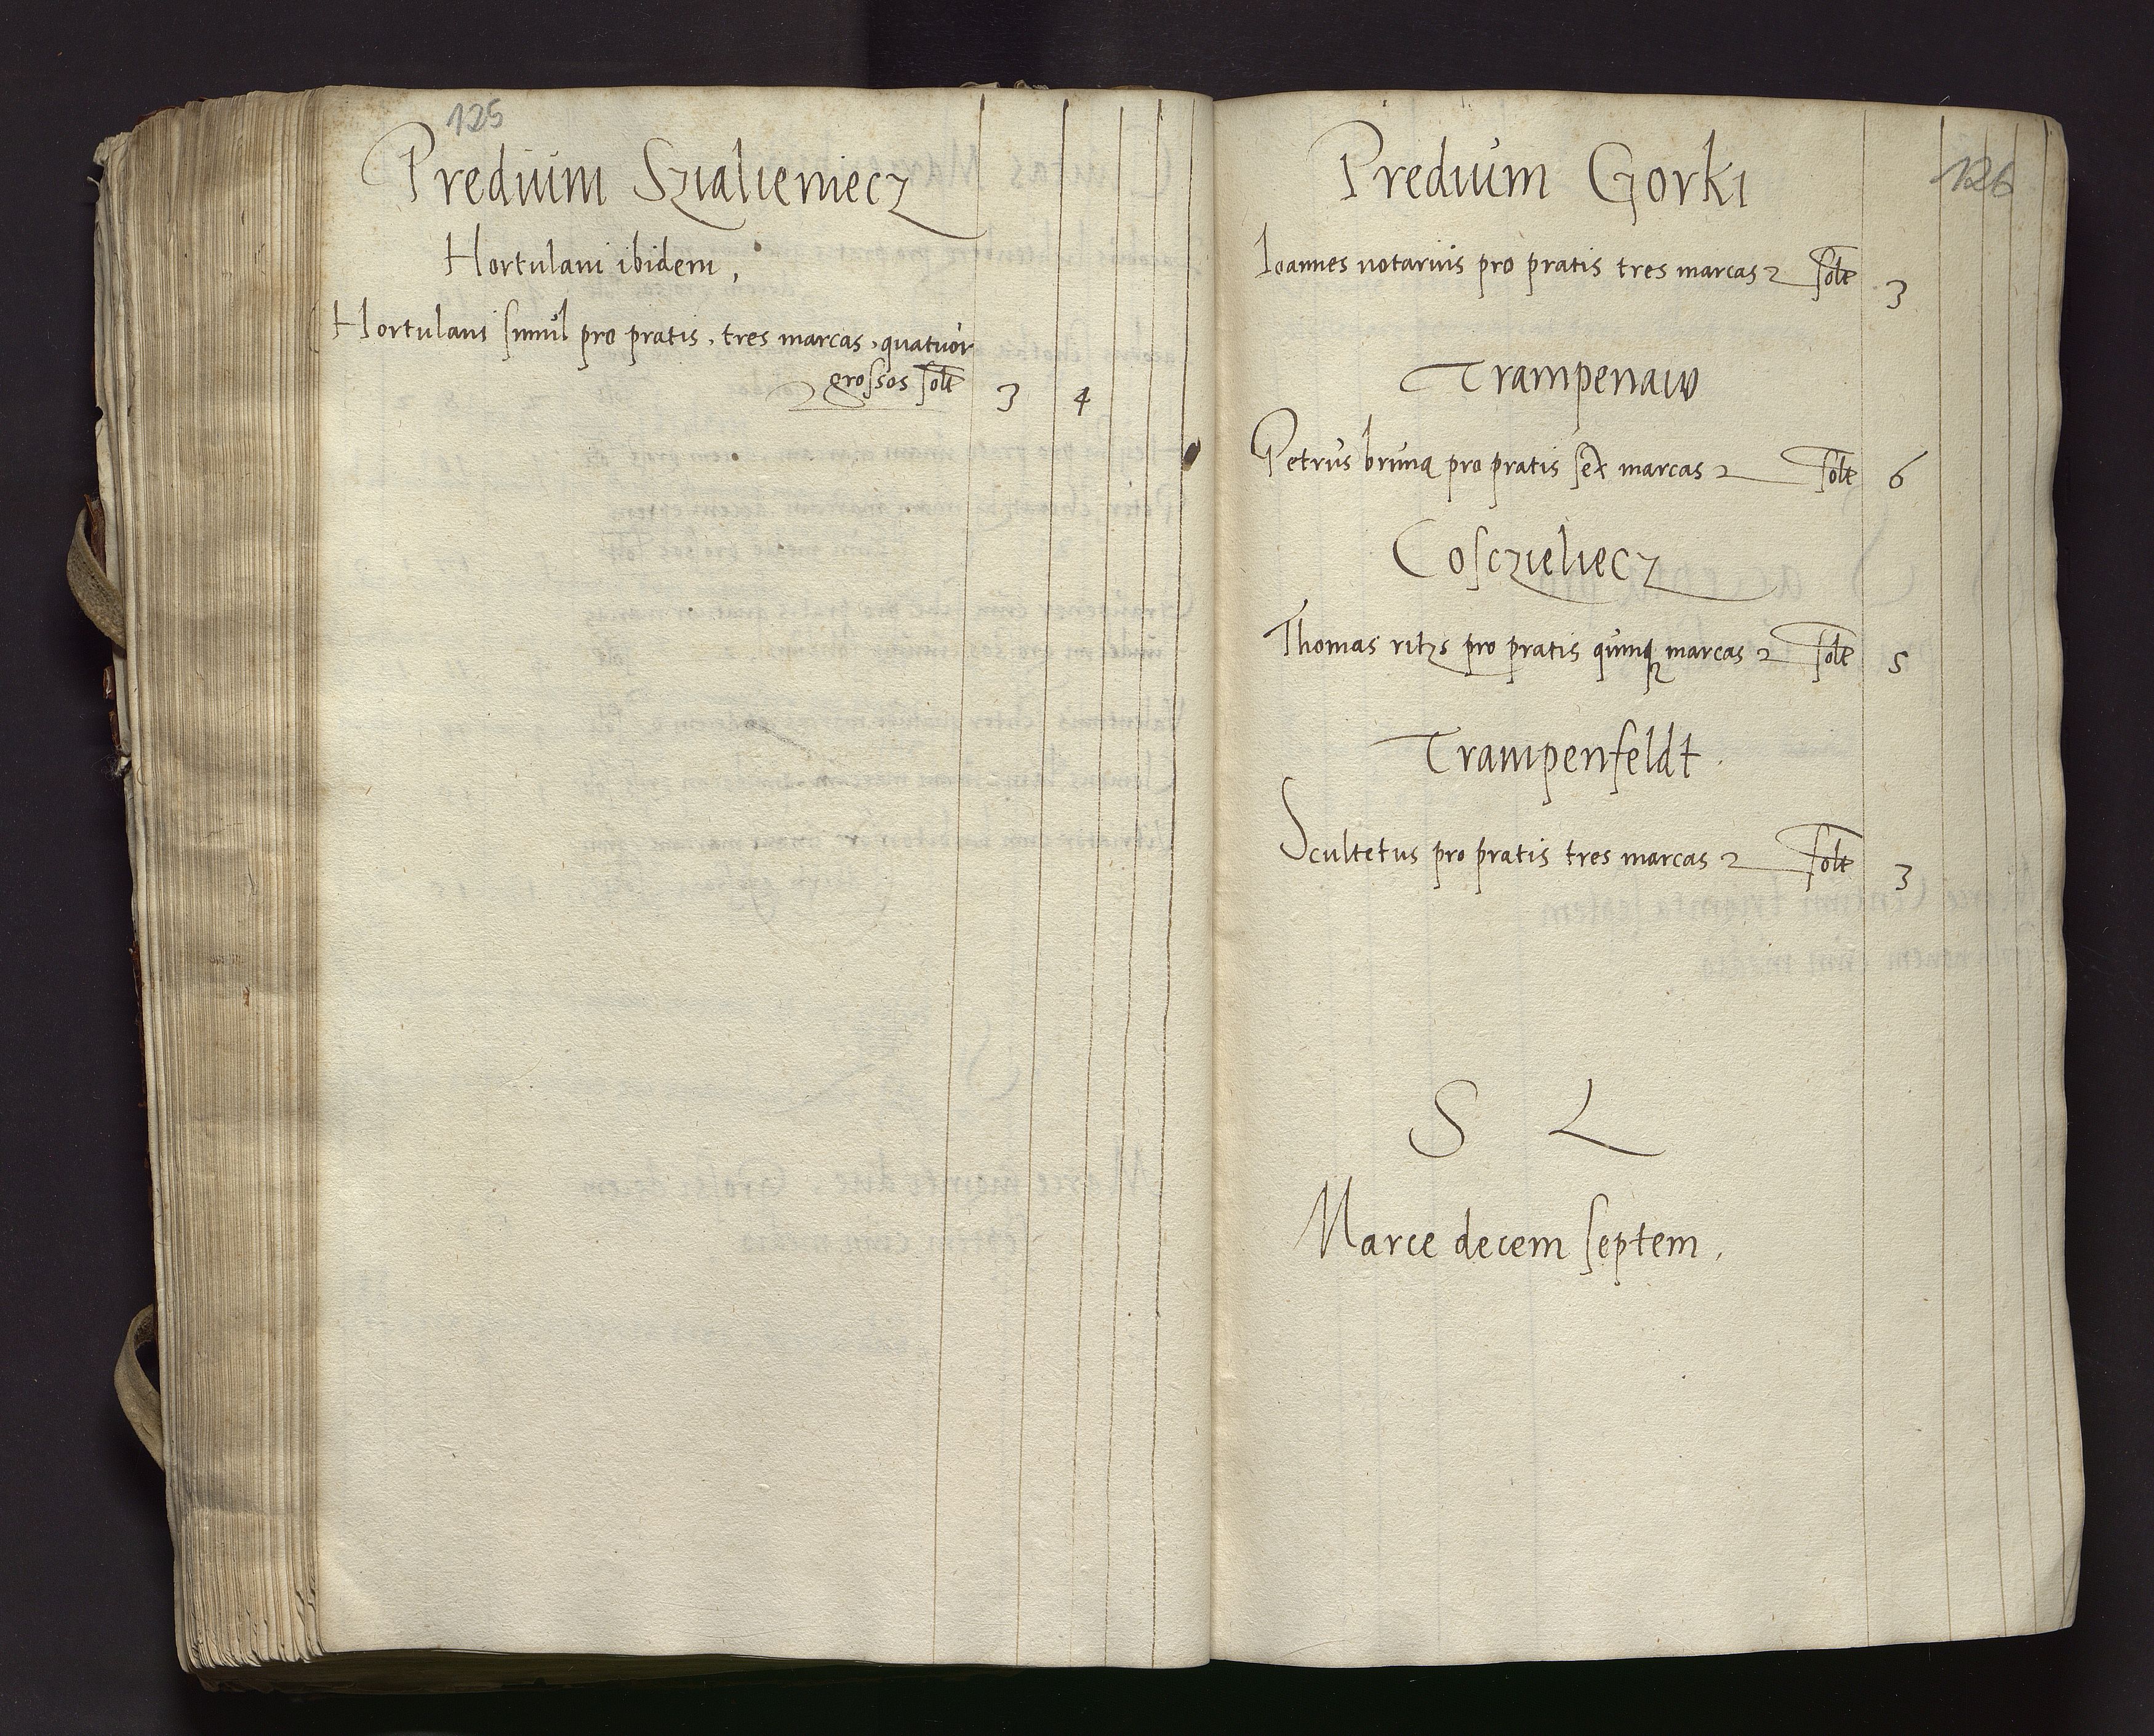 125
Predium Szialieniecz
Hortulani ibidem,
Hortulani simul pro pratis, tres marcas, quatuor
grossos solt 3 4
126
Predium Gorki
Ioannes notarius pro pratis tres marcas solt 3
Trampenaw
Petrus brunq pro pratis sex marcas solt 6
Cosczieliecz
Thomas ritzs pro pratis quinq marcas solt 5
Trampenfeldt
Scultetus pro pratis tres marcas solt 3
S L
Marce decem septem,